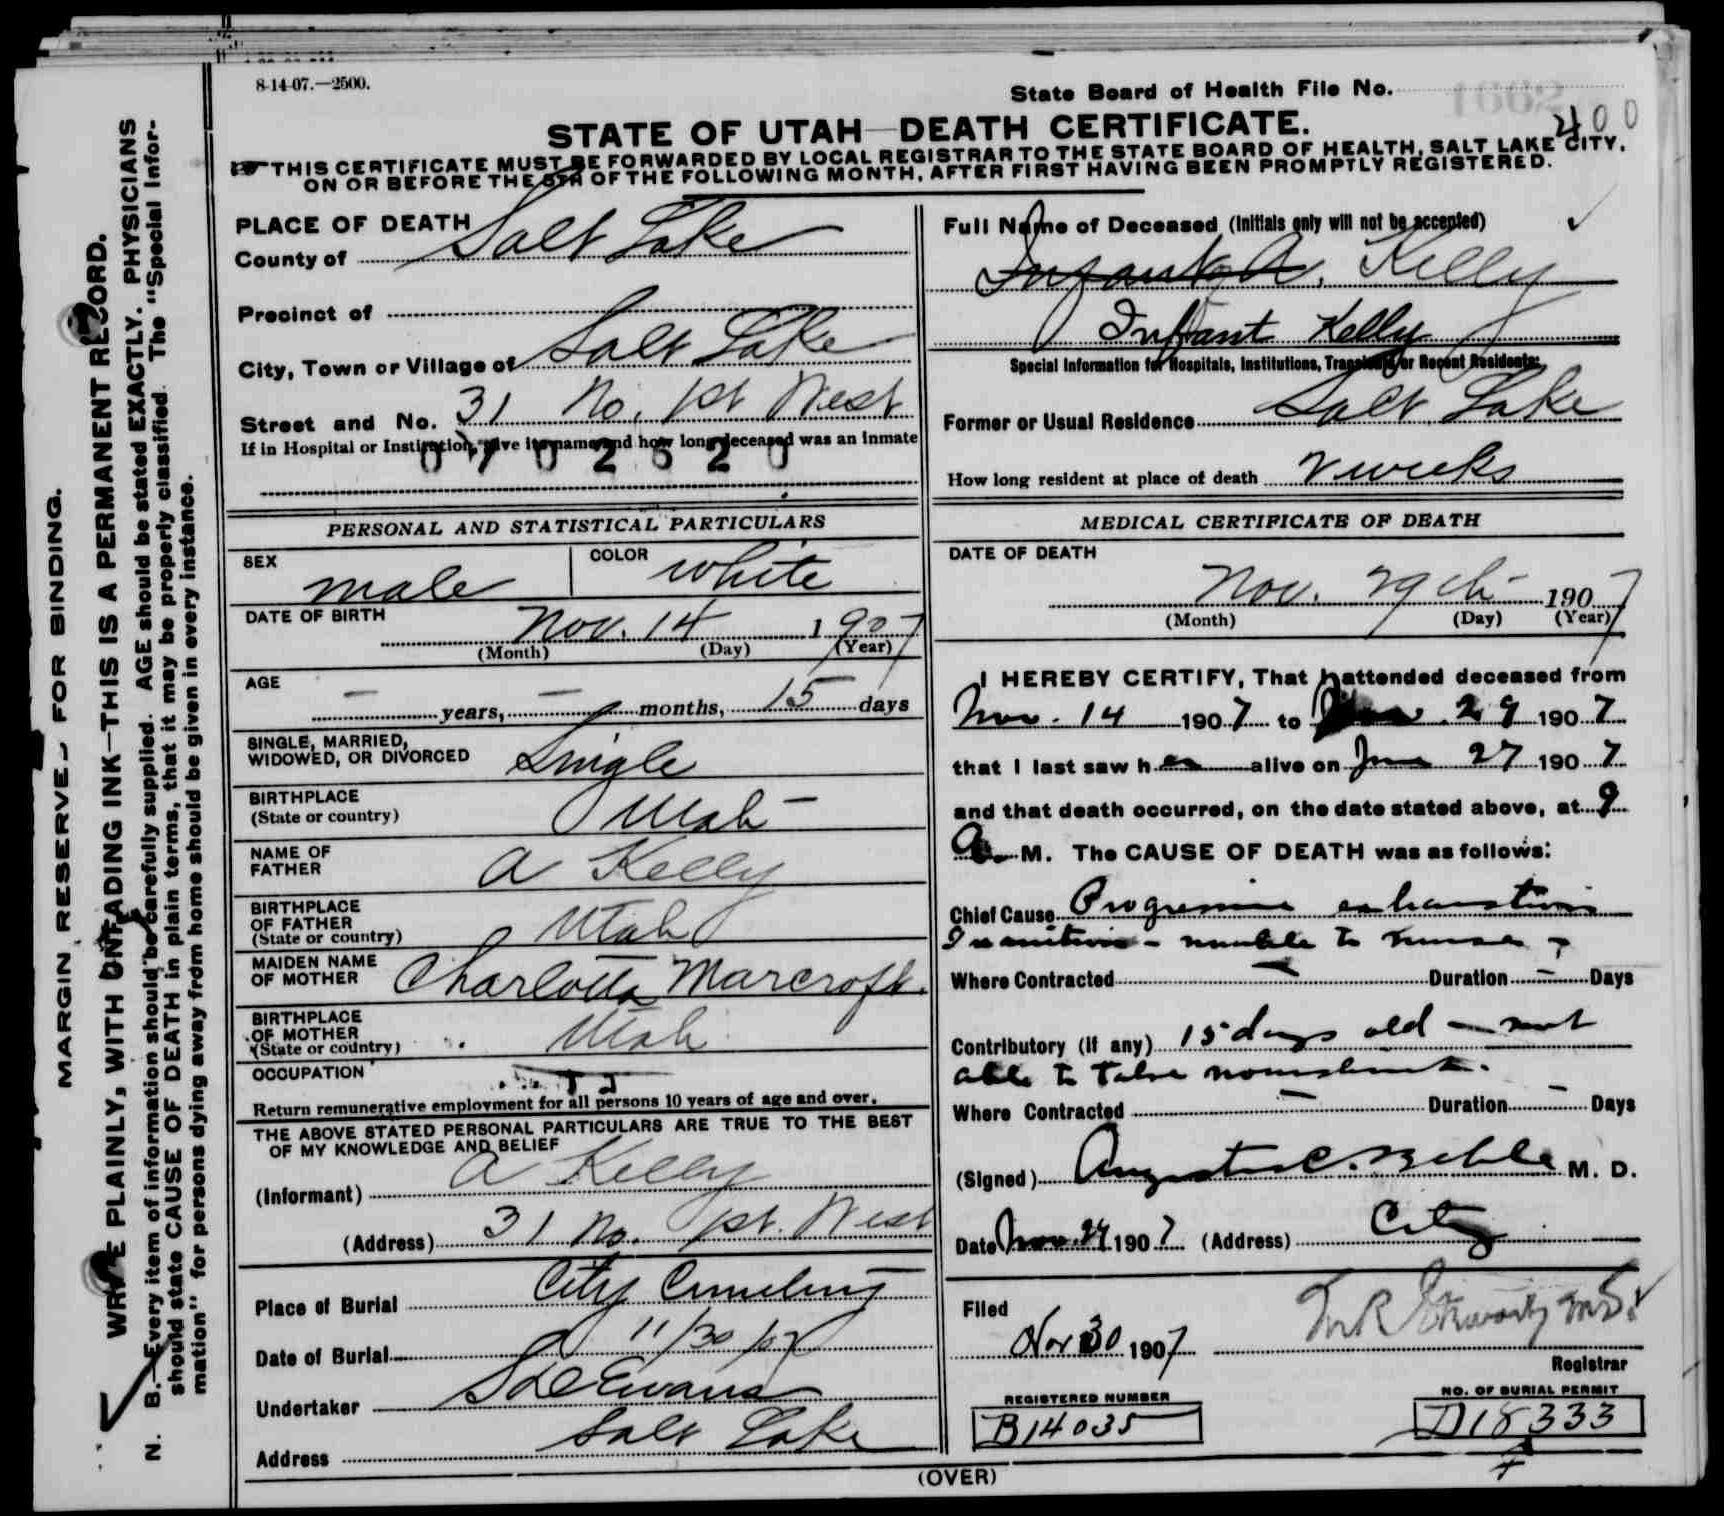 8-14-07.—2500.
State Board of Health File No.
400
STATE OF UTAH—DEATH CERTIFICATE.
THIS CERTIFICATE MUST BE FORWARDED BY LOCAL REGISTRAR TO THE STATE BOARD OF HEALTH, SALT LAKE CITY,
ON OR BEFORE THE 5TH OF THE FOLLOWING MONTH, AFTER FIRST HAVING BEEN PROMPTLY REGISTERED.
MARGIN RESERVED FOR BINDING.
WRITE PLAINLY, WITH UNFADING INK—THIS IS A PERMANENT RECORD.
N. B.—Every item of information should be carefully supplied. AGE should be stated EXACTLY. PHYSICIANS
should state CAUSE OF DEATH in plain terms, that it may be properly classified. The "Special Infor-
mation" for persons dying away from home should be given in every instance.
PLACE OF DEATH
County of Salt Lake
Precinct of
City, Town or Village of Salt Lake
Street and No. 31 No. 1st West
If in Hospital or Institution, give its name and how long deceased was an Inmate
PERSONAL AND STATISTICAL PARTICULARS
SEX male COLOR white
DATE OF BIRTH
Nov. 14 1907
(Month) (Day) (Year)
AGE
— years, — months, 15 days
SINGLE, MARRIED,
WIDOWED, OR DIVORCED Single
BIRTHPLACE
(State or country) Utah
NAME OF
FATHER A Kelly
BIRTHPLACE
OF FATHER
(State or country) Utah
MAIDEN NAME
OF MOTHER Charlotta Marcroft.
BIRTHPLACE
OF MOTHER
(State or country) Utah
OCCUPATION
Return remunerative employment for all persons 10 years of age and over.
THE ABOVE STATED PERSONAL PARTICULARS ARE TRUE TO THE BEST
OF MY KNOWLEDGE AND BELIEF
(Informant) A Kelly
(Address) 31 No. 1st. West
Place of Burial City Cemetery
Date of Burial 11/30/07
Undertaker S D Evans
Address Salt Lake
Full Name of Deceased (Initials only will not be accepted)
Infant of A. Kelly
Infant Kelly
Special Information for Hospitals, Institutions, Transients or Recent Residents:
Former or Usual Residence Salt Lake
How long resident at place of death 2 weeks
MEDICAL CERTIFICATE OF DEATH
DATE OF DEATH
Nov. 29th 1907
(Month) (Day) (Year)
I HEREBY CERTIFY, That I attended deceased from
Nov. 14 1907 to Nov. 29 1907
that I last saw h alive on 27 1907
and that death occurred, on the date stated above, at 9
A. M. The CAUSE OF DEATH was as follows:
Chief Cause Progressive exhaustion
Inanition - unable to nurse
Where Contracted — Duration — Days
Contributory (if any) 15 days old — not
able to take nourishment.
Where Contracted — Duration — Days
(Signed) Augustus C. Behle M. D.
Date Nov. 29 1907 (Address) City
Filed
Nov 30 1907
Registrar
REGISTERED NUMBER
B14035
NO. OF BURIAL PERMIT
D18333
(OVER)